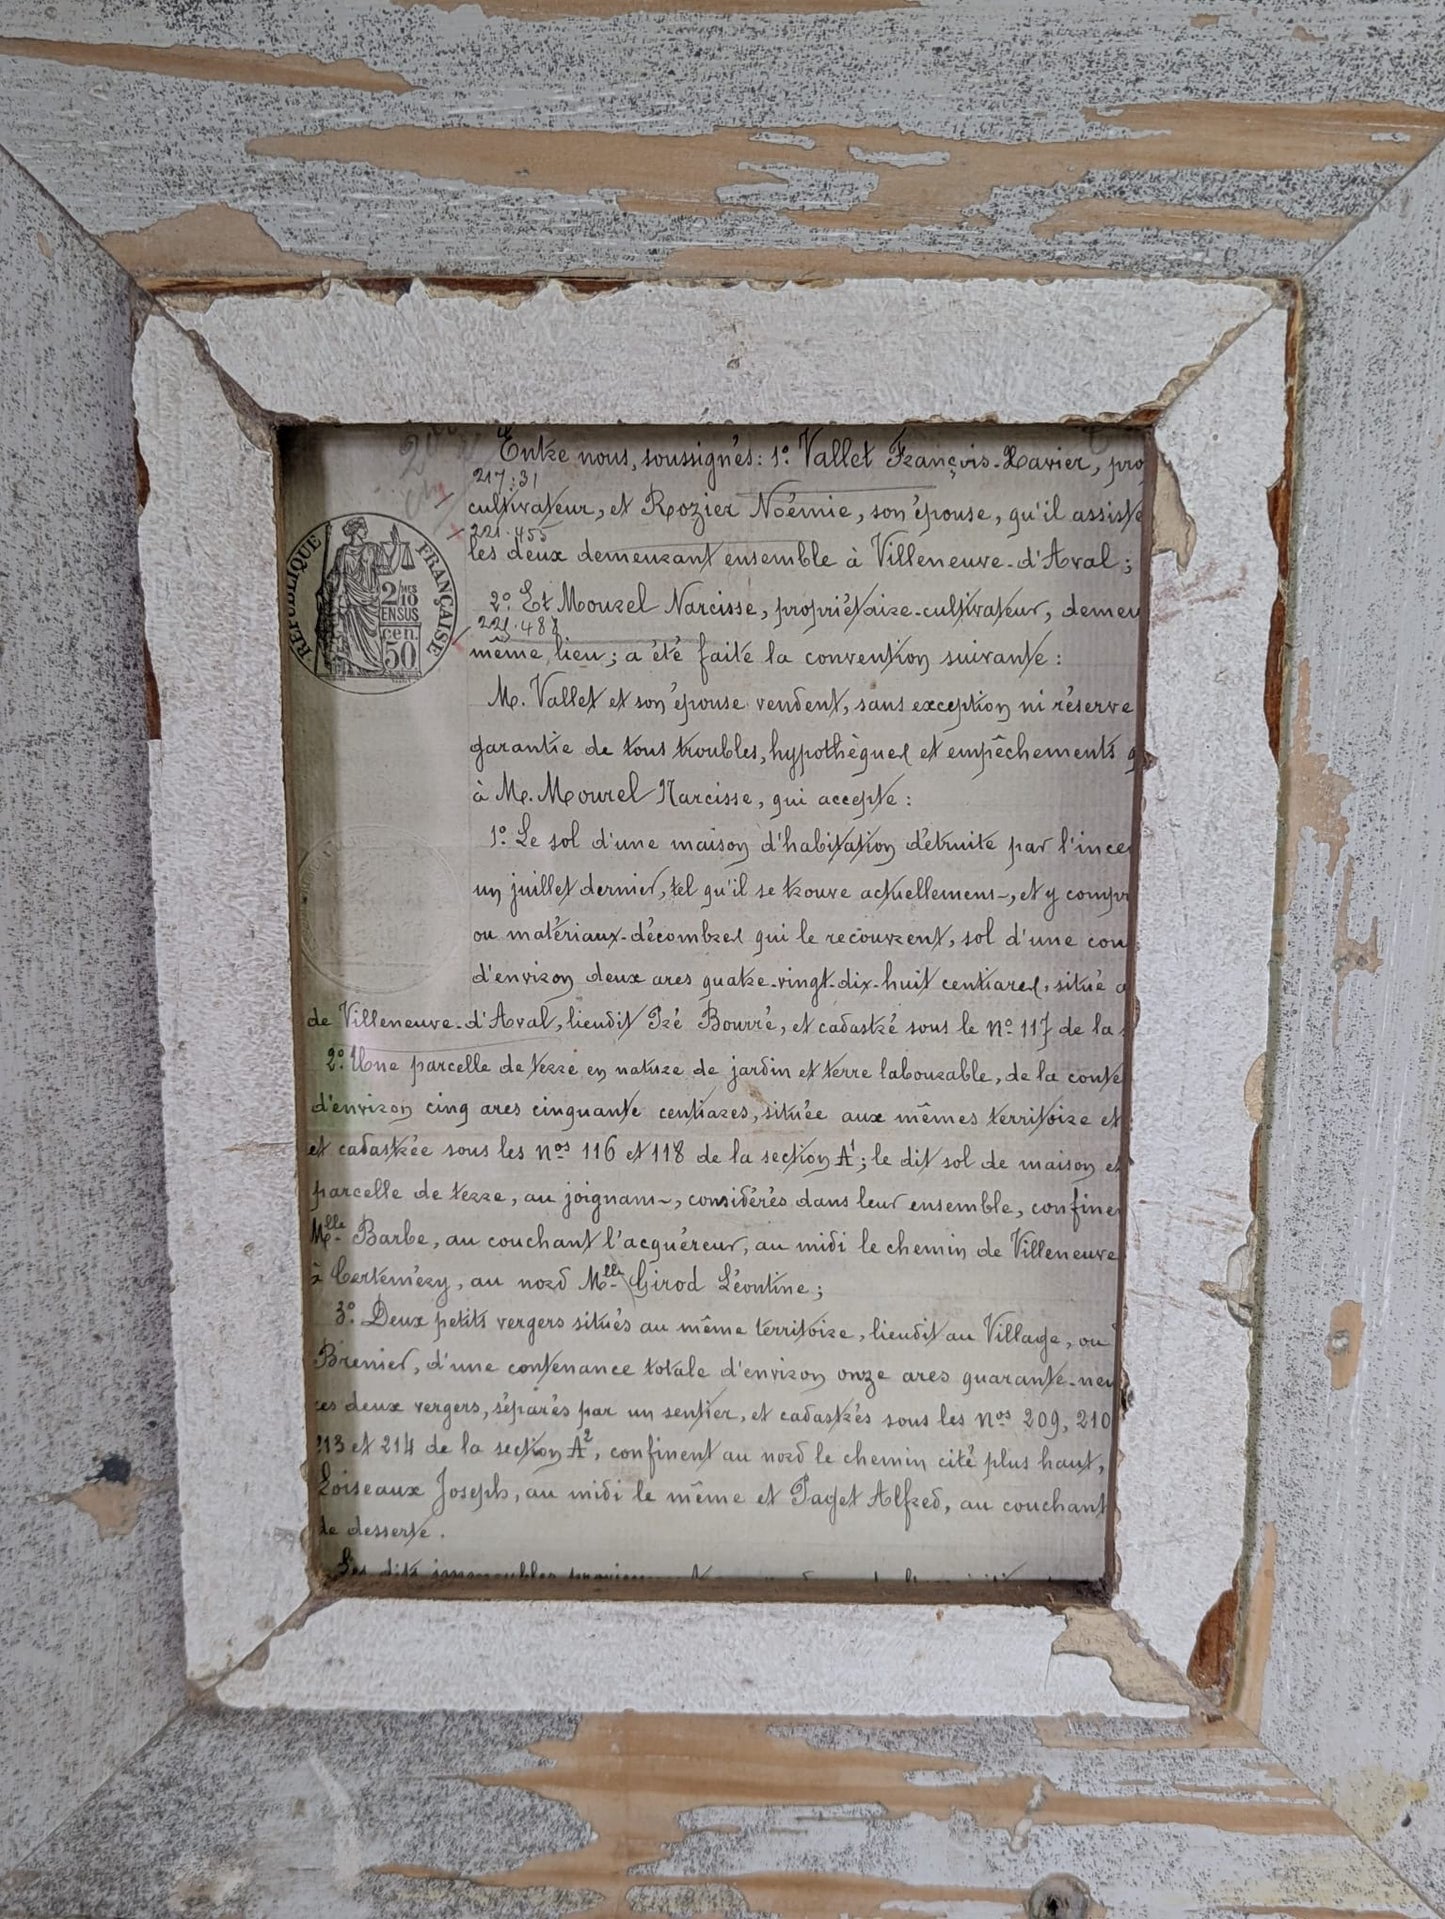 Entre nous, soussignés: 1º. Vallet François-Xavier, pro
217.31
cultivateur, et Rozier Noémie, son épouse, qu'il assiste
221.455
les deux demeurant ensemble à Villeneuve-d'Aval;
2º. Et Mourel Narcisse, propriétaire-cultivateur, demeu
même lieu; a été faite la convention suivante:
RÉPUBLIQUE FRANÇAISE
2/10 EN SUS
50 cen.
M. Vallet et son épouse vendent, sans exception ni réserve
garantie de tous troubles, hypothèques et empêchements q
à M. Mourel Narcisse, qui accepte:
1º. Le sol d'une maison d'habitation détruite par l'ince
un juillet dernier, tel qu'il se trouve actuellement, et y compr
ou matériaux-décombres qui le recouvrent, sol d'une con
d'environ deux ares quatre-vingt-dix-huit centiares, situé a
de Villeneuve-d'Aval, lieudit Pré Bourré, et cadastré sous le Nº 117 de la s
2º. Une parcelle de terre en nature de jardin et terre labourable, de la conte
d'environ cinq ares cinquante centiares, située aux mêmes territoire et
et cadastrée sous les Nºˢ 116 et 118 de la section A¹; le dit sol de maison et
parcelle de terre, au joignant, considérés dans leur ensemble, confine
Mlle Barbe, au couchant l'acquéreur, au midi le chemin de Villeneuve
à Certémery, au nord Mlle Girod Léontine;
3º. Deux petits vergers situés au même territoire, lieudit au Village, ou
Brenier, d'une contenance totale d'environ onze ares quarante-neu
ces deux vergers, séparés par un sentier, et cadastrés sous les Nºˢ 209, 210
213 et 214 de la section A², confinent au nord le chemin cité plus haut,
Loiseaux Joseph, au midi le même et Paget Alfred, au couchant
de desserte.
Les dits immeubles